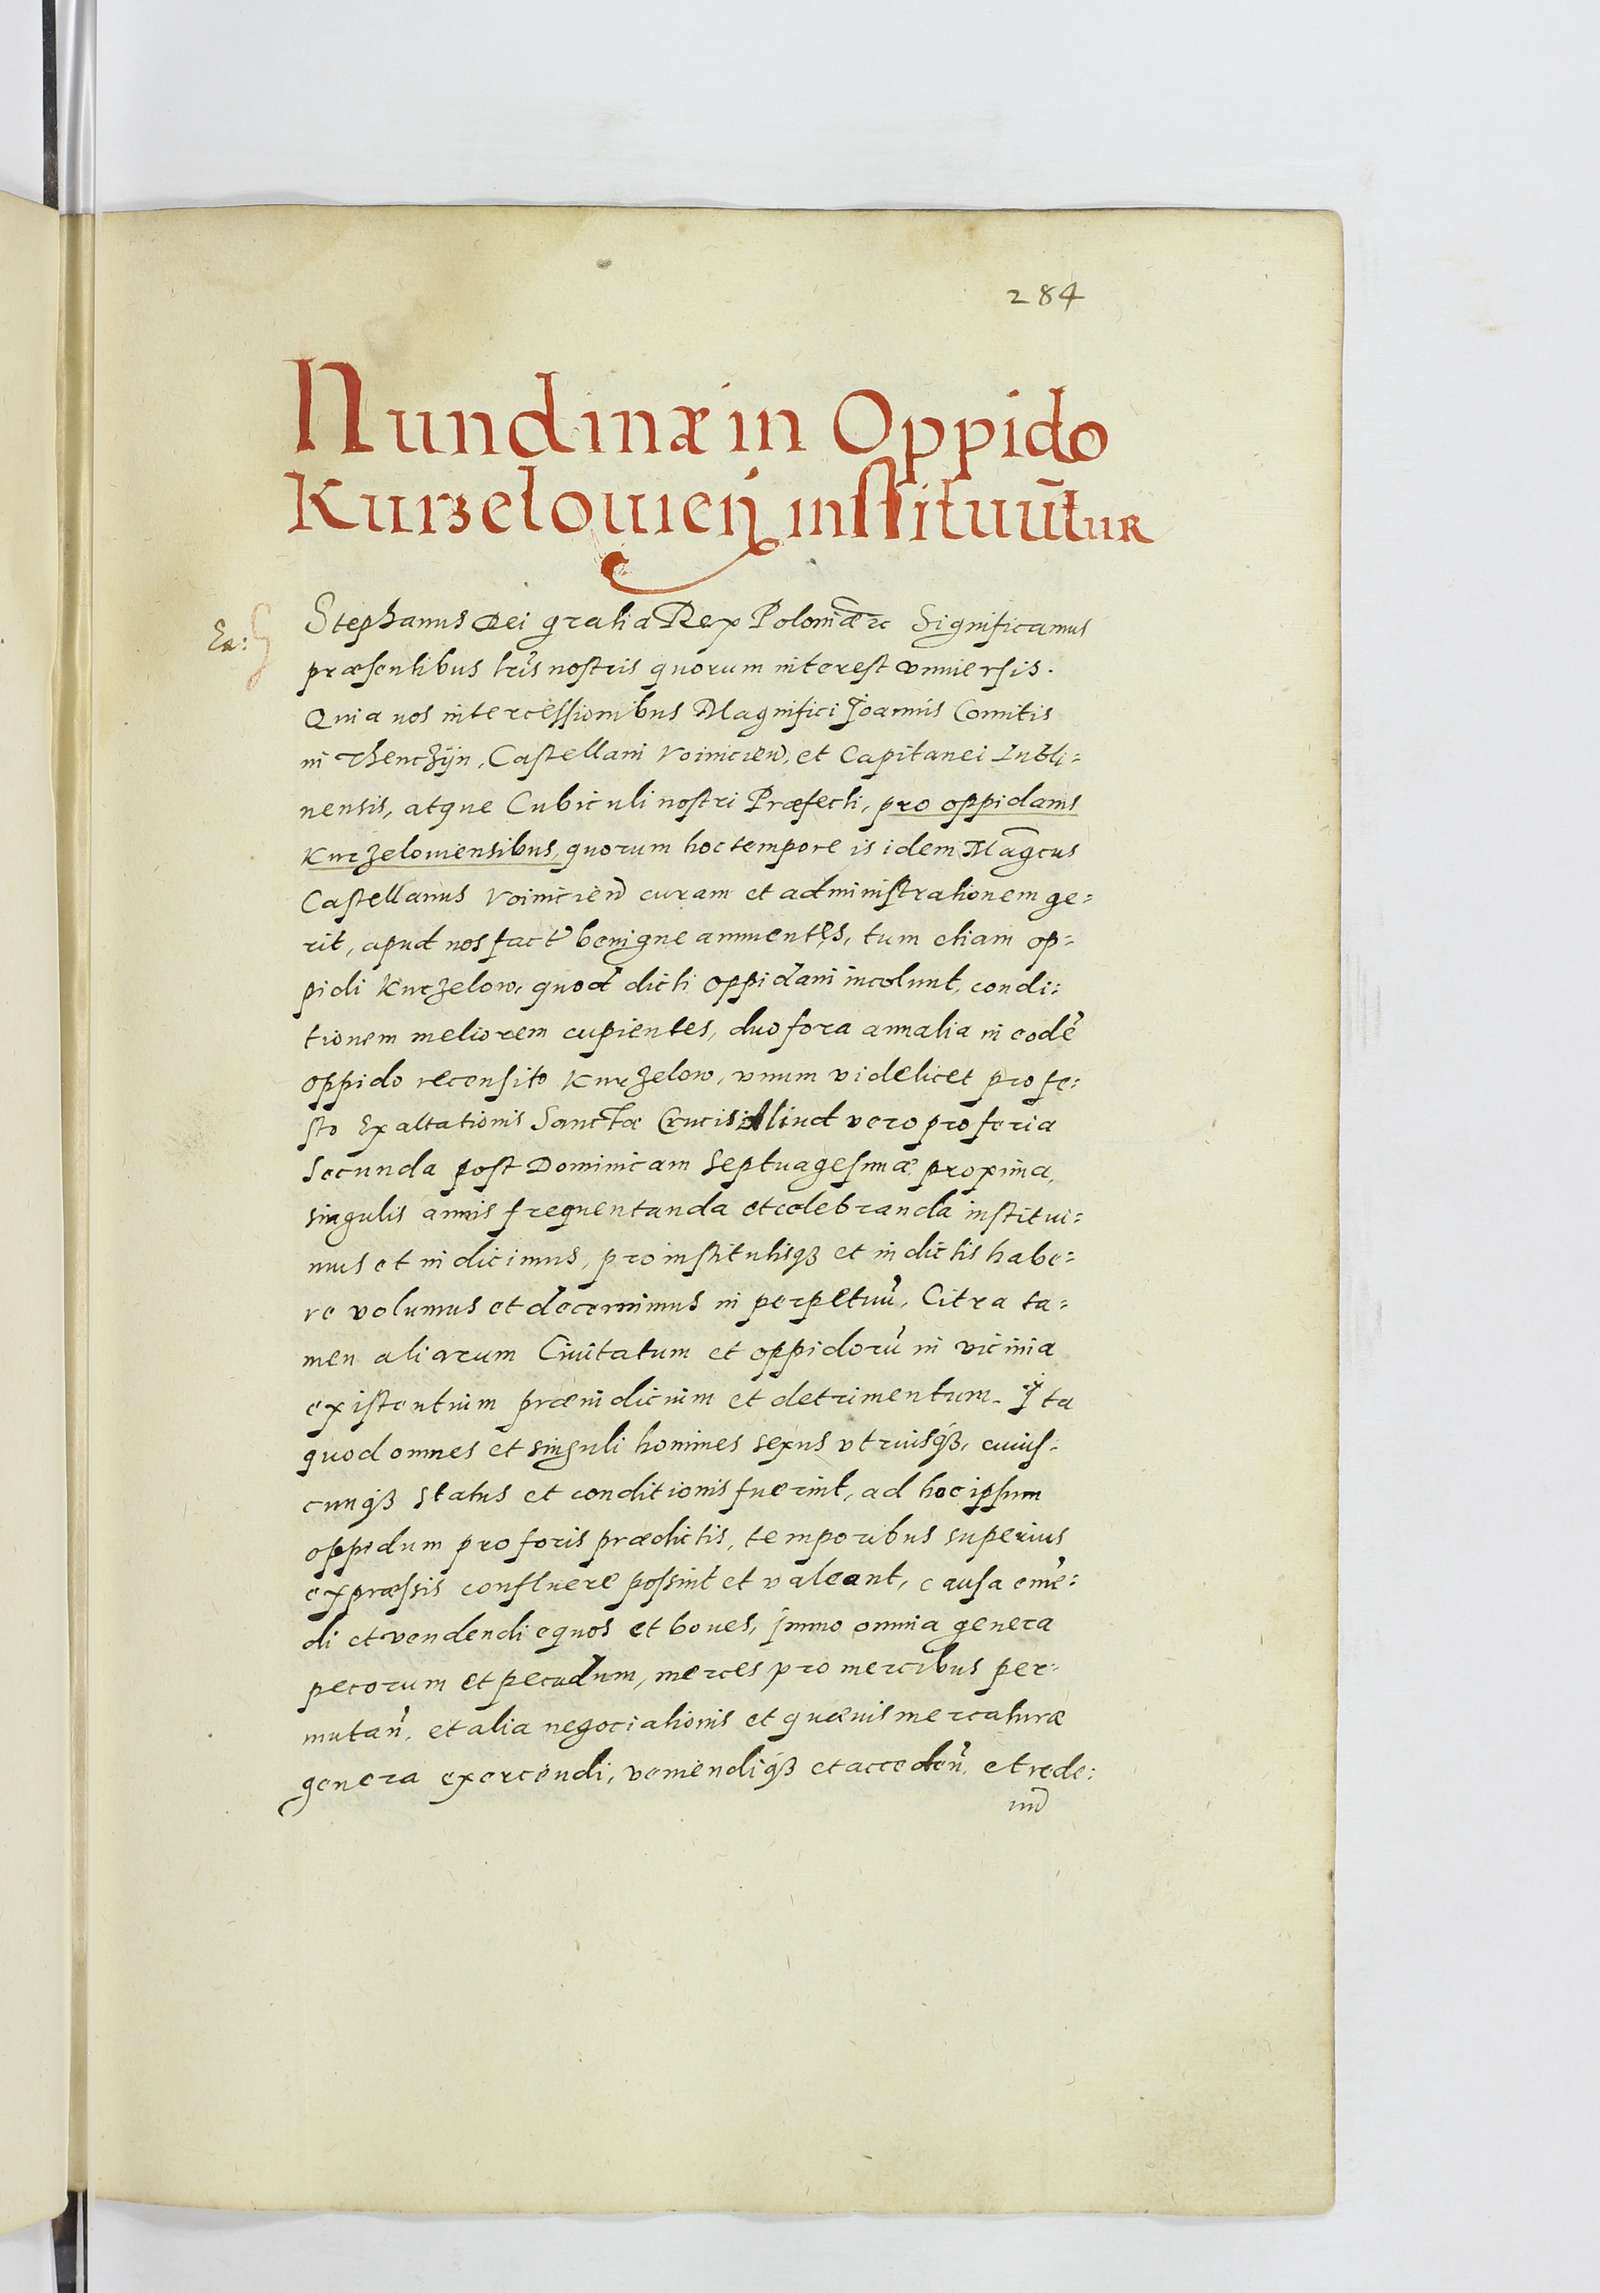 284
Nundinæ in Oppido
Kurzelouień instituūtur
Ex:
Stephanus Dei gratia Rex Poloniæ etc Significamus
præsentibus lr̃is nostris quorum interest vniuersis.
Quia nos intercessionibus Magnifici Joannis Comitis
in Thenczÿn, Castellani Voinicieñ, et Capitanei Lubli=
nensis, atque Cubiculi nostri Præfecti, pro oppidanis
Kurzelouiensibus, quorum hoc tempore is idem Mag̃cus
Castellanus Voinicieñ curam et administrationem ge=
rit, apud nos fact̃ benigne annuentes, tum etiam op=
pidi Kurzelow, quod dicti oppidani incolunt, condi=
tionem meliorem cupientes, duo fora annalia in eodē
oppido recensito Kurzelow, vnum videlicet pro fe=
sto Exaltationis Sanctæ Crucis Aliud vero pro feria
secunda post Dominicam Septuagesimæ proxima,
singulis annis frequentanda et celebranda institui=
mus et indicimus, pro institutisq3 et indictis habe=
re volumus et decernimus in perpetuū, Citra ta=
men aliarum Ciuitatum et oppidorū in vicinia
existentium præiudicium et detrimentum. Ita
quod omnes et singuli homines sexus vtriusq3, cuius=
cunq3 status et conditionis fuerint, ad hoc ipsum
oppidum pro foris prædictis, temporibus superius
expræssis confluere possint et valeant, causa emē=
di et vendendi equos et boues, immo omnia genera
pecorum et pecudum, merces pro mercibus per=
mutañ, et alia negociationis et quæuis mercaturæ
genera exercendi, veniendiq3 et accedeñ, et rede:
uñ